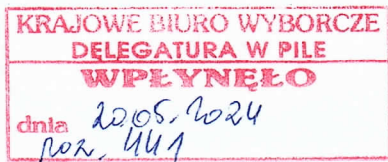 KRAJOWE BIURO WYBORCZE
DELEGATURA W PILE
WPŁYNĘŁO
dnia 20.05.2024
poz. 441